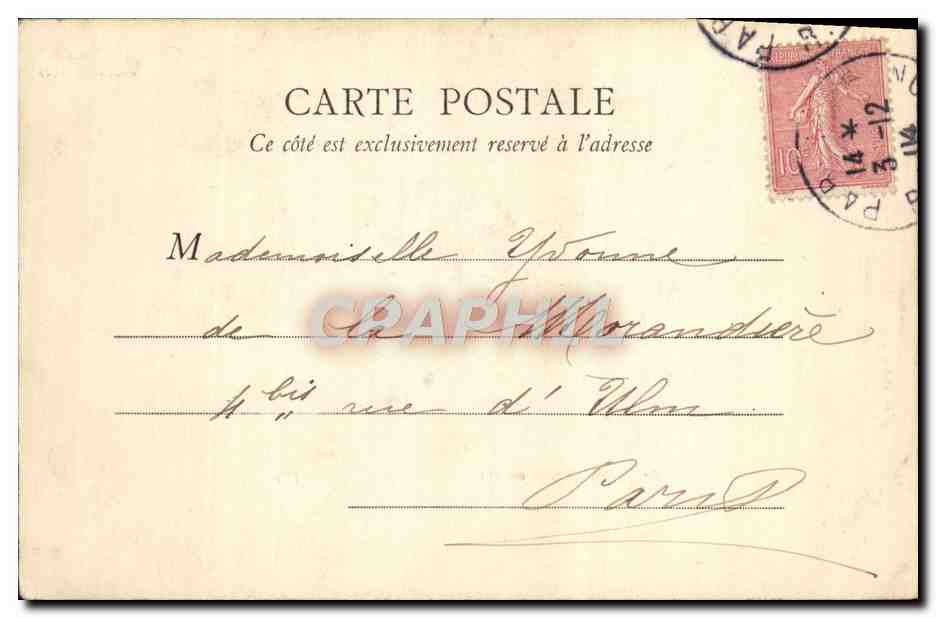 CARTE POSTALE
Ce côté est exclusivement reservé à l'adresse
Mademoiselle Yvonne
de la Morandière
4 bis rue d'Ulm
Paris
CPAPHIL
10
14 *
3 -12
PAR
PAR